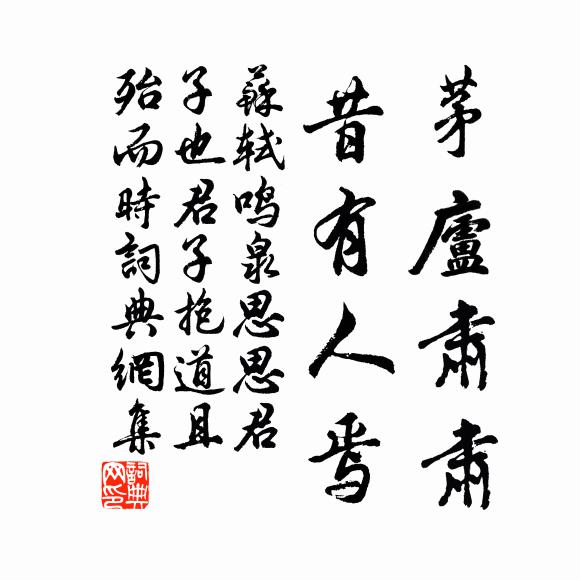 茅廬肅肅
昔有人焉
蘇軾鳴泉思思君
子也君子抱道且
殆而時詞典網集
詞典网印